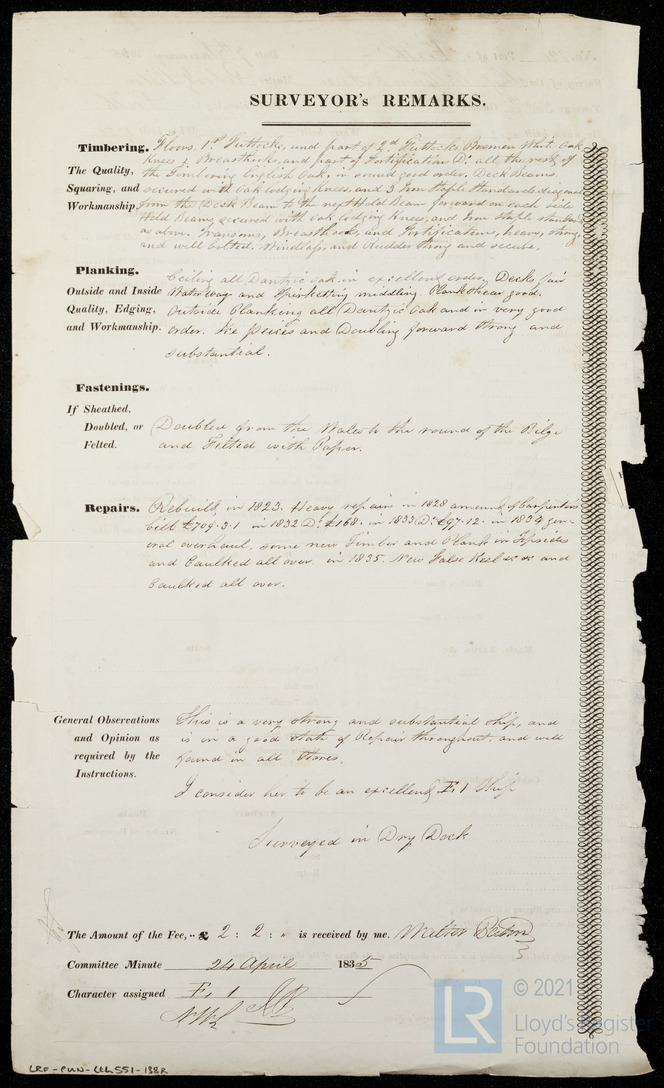 SURVEYOR's REMARKS.
Timbering. Floors, 1st Futtocks, and part of 2d Futtocks Bremen White Oak
Knees & Breasthooks, and part of Fortification Do all the rest of
The Quality, the Timbering English Oak, in sound good order. Deck Beams
Squaring, and secured with Oak lodging Knees, and 3 Iron Staple Standards
Workmanship. from the Deck Beam to the next Hold Beam forward on each side
Hold Beams secured with oak lodging Knees, and Iron Staple
as above. Transoms, Breasthooks, and Fortifications, heavy, strong
and well bolted. Windlass, and Rudder strong and secure.
Planking. Ceiling all Dantzic oak in excellent order, Decks fair
Outside and Inside Waterway and Spirketting middling. Planksheer good.
Quality, Edging, Outside Planking all Dantzic Oak and in very good
and Workmanship. order. Ice pieces and Doubling forward strong and
substantial.
Fastenings.
If Sheathed,
Doubled, or Doubled from the Wales to the round of the Bilge
Felted. and Felted with Paper.
Repairs. Rebuilt in 1823. Heavy repairs in 1828 amount of Carpenters
bill £709.3.1 in 1832 Do £168. in 1833 Do £97.12. in 1834 gen-
eral overhaul, some new Timber and Plank in Topsides
and Caulked all over. in 1835. New False Keel &c &c and
Caulked all over.
General Observations This is a very strong and substantial ship, and
and Opinion as is in a good state of Repair throughout, and well
required by the found in all stores.
Instructions.
I consider her to be an excellent E.1 Ship
Surveyed in Dry Dock
The Amount of the Fee, £ 2 : 2 : " is received by me. Walter Paton
Committee Minute 24 April 1835
Character assigned E. 1
LR © 2021
Lloyd's Register
Foundation
LRF-PUN-LTH551-138R